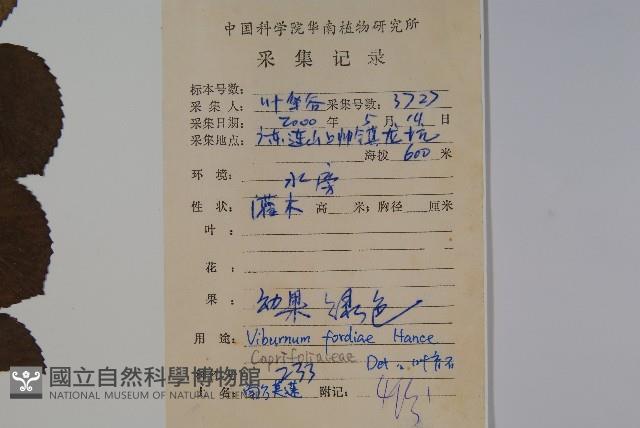 中国科学院华南植物研究所
采集记录
标本号数:
采集人: 叶华谷 采集号数: 3727
采集日期: 2000 年 5 月 14 日
采集地点: 广东连山上帅镇龙坑
海拔 600 米
环境: 水旁
性状: 灌木 高 米; 胸径 厘米
叶:
花:
果: 幼果绿色
用途: Viburnum fordiae Hance
Caprifoliaceae Det.
233
附记:
國立自然科學博物館
NATIONAL MUSEUM OF NATURAL